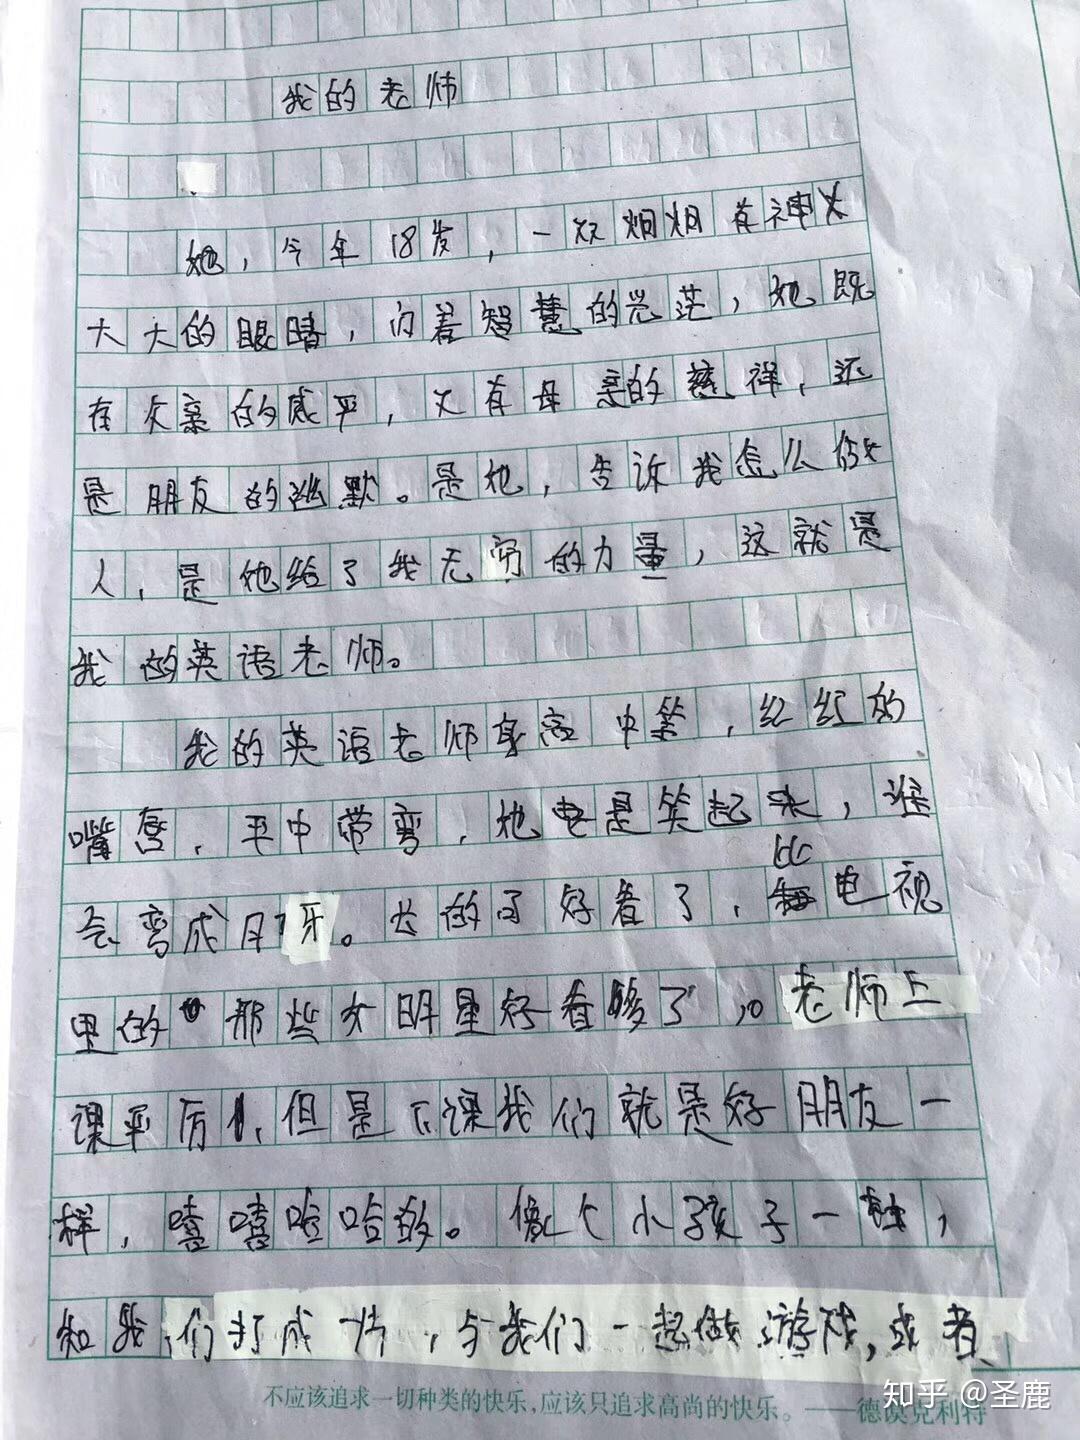 我的老师
她，今年18岁，一双炯炯有神
大大的眼睛，闪着智慧的光茫，她既
有父亲的威严，又有母亲的慈祥，还
是朋友的幽默。是她，告诉我怎么做
人，是她给了我无穷的力量，这就是
我的英语老师。
我的英语老师身高中等，红红的
嘴唇，平中带弯，她是笑起来，
会弯成月牙。长的可好看了，比电视
里的那些女明星好看多了。老师上
课严厉，但是下课我们就是好朋友一
样，嘻嘻哈哈的。像个小孩子一
和我们打成一片，与我们一起做游戏，或者
不应该追求一切种类的快乐，应该只追求高尚的快乐。——德谟克利特
知乎 @圣鹿